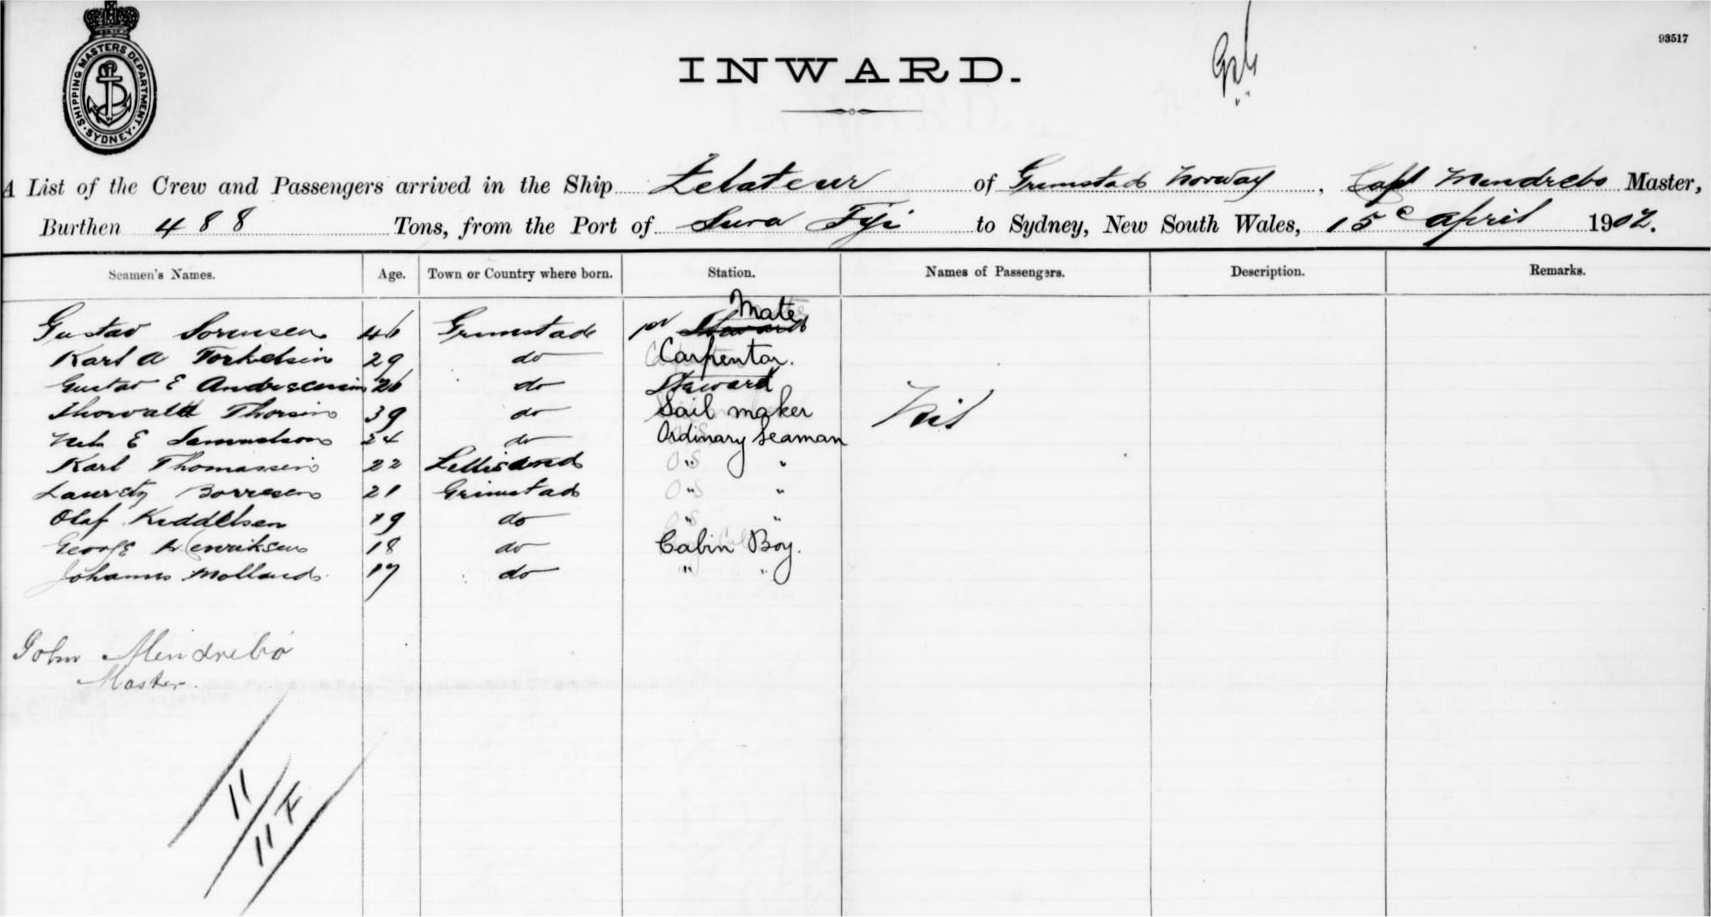 SHIPPING MASTERS DEPARTMENT
SYDNEY
93517
INWARD.
A List of the Crew and Passengers arrived in the Ship Zelateur of Grimstad Norway, Capt Mendrebo Master,
Burthen 488 Tons, from the Port of Suva Fiji to Sydney, New South Wales, 15 April 1902.
Seamen's Names. Age. Town or Country where born. Station. Names of Passengers. Description. Remarks.
Gustav Sorensen 46 Grimstad Steward Mate
Karl A Torkelsin 29 do Carpenter.
Gustav E Andreesen 26 do Steward
Thorvald Thorsin 39 do Sail maker Nil
E Samuelson 24 do Ordinary Seaman
Karl Thomassin 22 Lillisand OS " "
Lauretz Borresen 21 Grimstad OS " "
Olaf Kiddelsen 19 do OS " "
George Henriksen 18 do Cabin Boy.
Johannes Molland 17 do " "
John Mendrebo
Master.
11
11 F